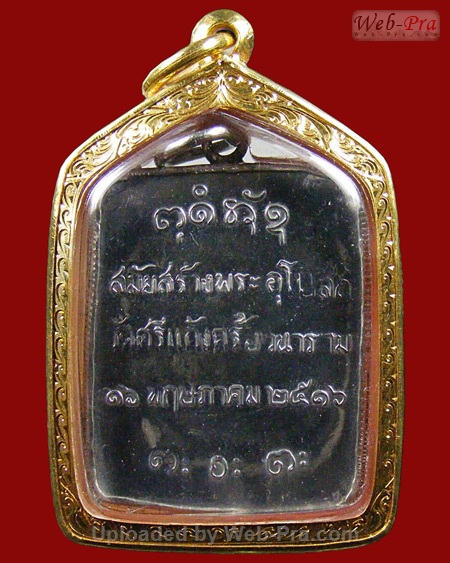 Web-Pra
Web-Pra.com
สมัยสร้างพระอุโบสถ
วัดศรีแก้งคร้อวนาราม
๑๖ พฤษภาคม ๒๕๑๖
Uploaded by Web-Pra.com